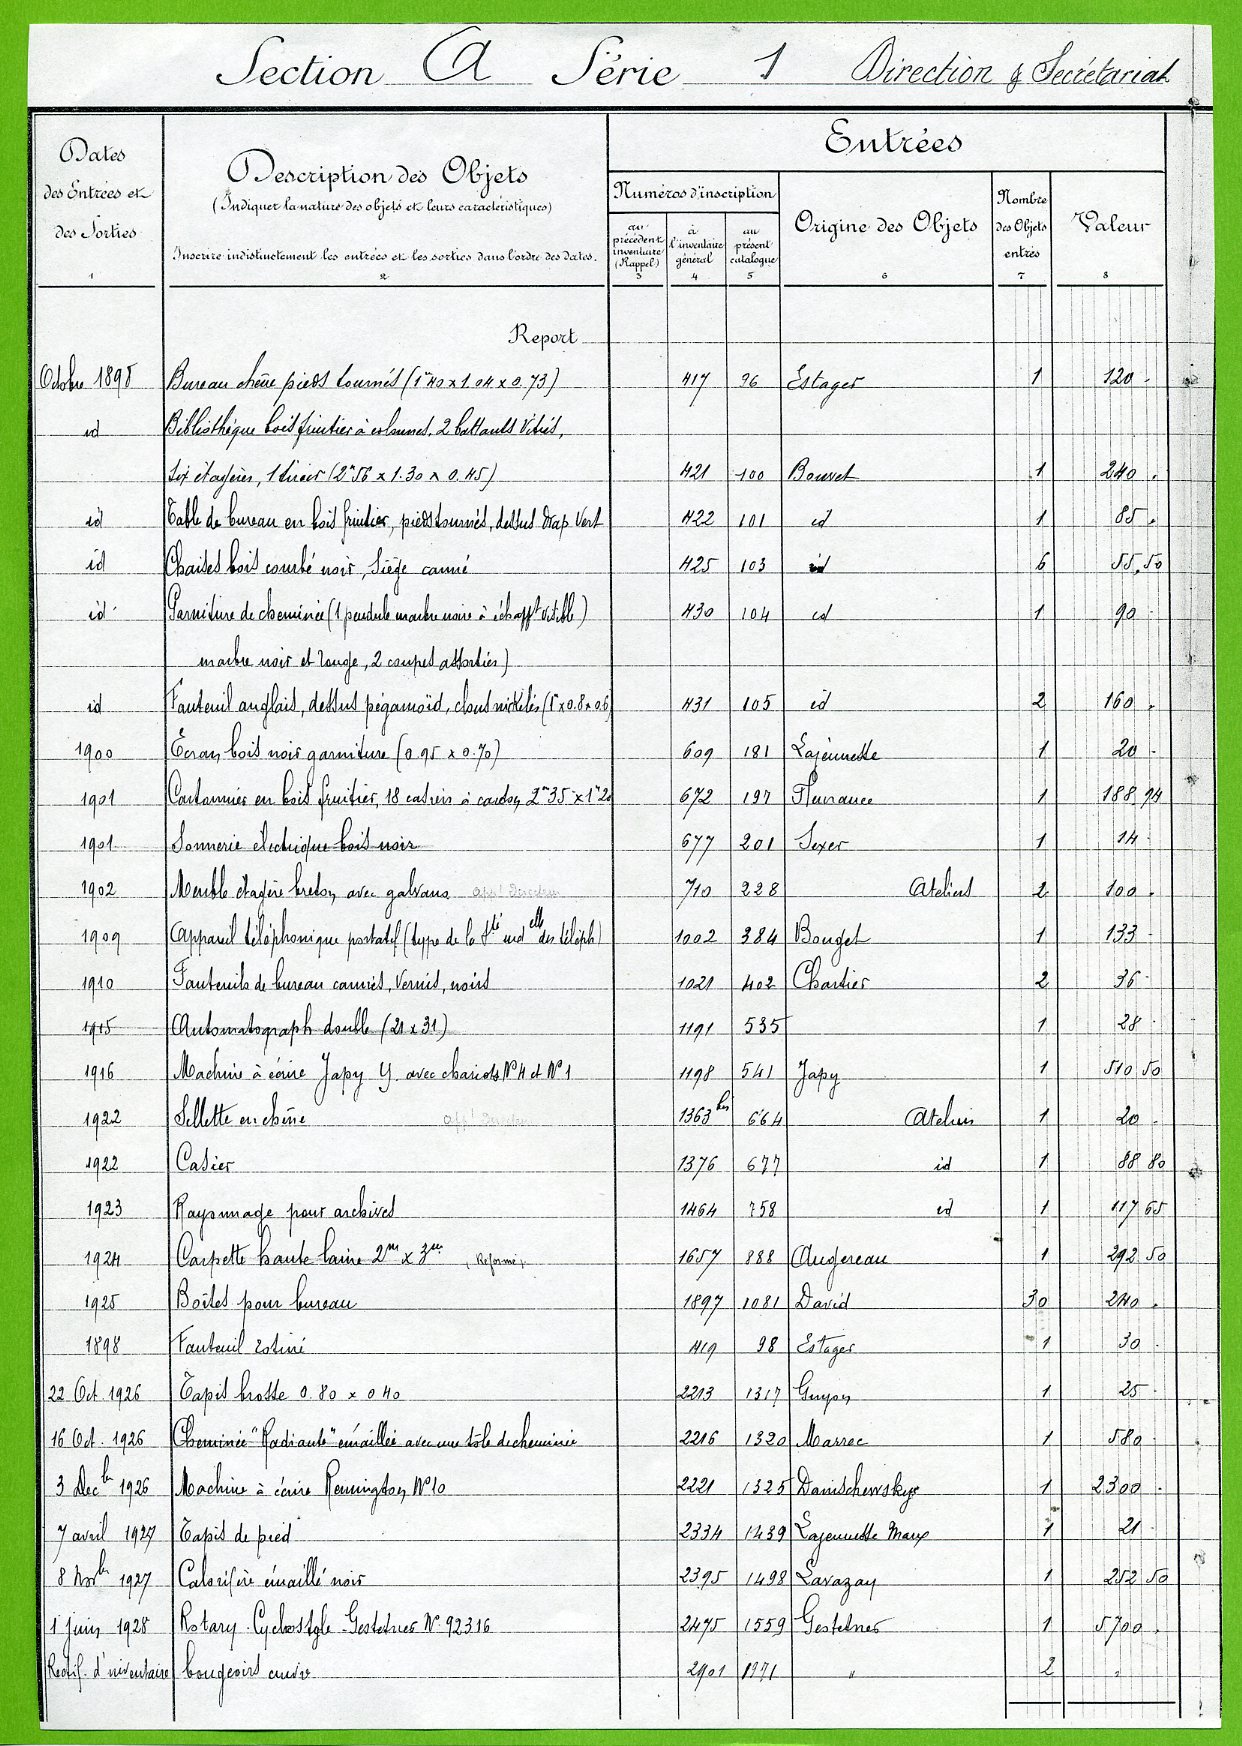 Section A Série 1 Direction & Secrétariat
Dates des Entrées et des Sorties
1
Description des Objets
(Indiquer la nature des objets et leurs caractéristiques)
Inscrire indistinctement les entrées et les sorties dans l'ordre des dates.
2
Entrées
Numéros d'inscription
au précédent inventaire (Rappel)
3
à l'inventaire général
4
au présent catalogue
5
Origine des Objets
6
Nombre des Objets entrés
7
Valeur
8
Report
Octobre 1898 Bureau chêne pieds tournés (1m40 x 1.04 x 0.73) 417 96 Estager 1 120 -
id Bibliothèque bois fruitier à colonnes, 2 battants vitrés,
six étagères, 1 tiroir (2m56 x 1.30 x 0.45) 421 100 Bouvet 1 240 .
id Table de bureau en bois fruitier, pieds tournés, dessus drap vert 422 101 id 1 85 .
id Chaises bois courbé noir, siège canné 425 103 id 6 55,50
id Garniture de cheminée (1 pendule marbre noire à échappt visible) 430 104 id 1 90 -
marbre noir et rouge, 2 coupes assorties)
id Fauteuil anglais, dessus pégamoïd, clous nickelés (1m x 0.8 x 0.6 431 105 id 2 160 .
1900 Écran bois noir garniture (0.95 x 0.70) 609 181 Lajeunesse 1 20 -
1901 Cartonnier en bois fruitier, 18 casiers à carton 2m35 x 1m20 672 197 1 188 94
1901 Sonnerie électrique bois noir 677 201 Sexer 1 14 -
1902 Meuble étagère breton avec galvano 710 228 Ateliers 2 100 .
1909 Appareil téléphonique portatif (type de la Sté indelle des téléph) 1002 384 Bouget 1 133 -
1910 Fauteuils de bureau cannés, vernis, noirs 1021 402 Chartier 2 36 -
1915 Automatograph double (21 x 31) 1191 535 1 28 -
1916 Machine à écrire Japy Y. avec chariots N°4 et N°1 1198 541 Japy 1 510 50
1922 Sellette en chêne 1363 bis 664 Ateliers 1 20 -
1922 Casier 1376 677 id 1 88 80
1923 Rayonnage pour archives 1464 758 id 1 117 65
1924 Carpette haute laine 2m x 3m (Reformé) 1657 888 Augereau 1 292 50
1925 Boîtes pour bureau 1897 1081 David 30 240 .
1898 Fauteuil 419 98 Estager 1 30 -
22 Oct 1926 Tapis brosse 0.80 x 0.40 2213 1317 Guyon 1 25 -
16 Oct. 1926 Cheminée "Radiante" émaillée avec une tôle de cheminée 2216 1320 Marrec 1 580
3 Decbr 1926 Machine à écrire Remington N°10 2221 1325 Danischewskys 1 2300 -
7 avril 1927 Tapis de pied 2334 1439 Lajeunesse Marx 1 21 -
8 Novbr 1927 Calorifère émaillé noir 2395 1498 Lavazay 1 252 50
1 juin 1928 Rotary-Cyclostyle-Gestetner N° 92316 2475 1559 Gestetner 1 5700 .
Rectif. d'inventaire bougeoirs cuivre 2901 1971 " 2 "